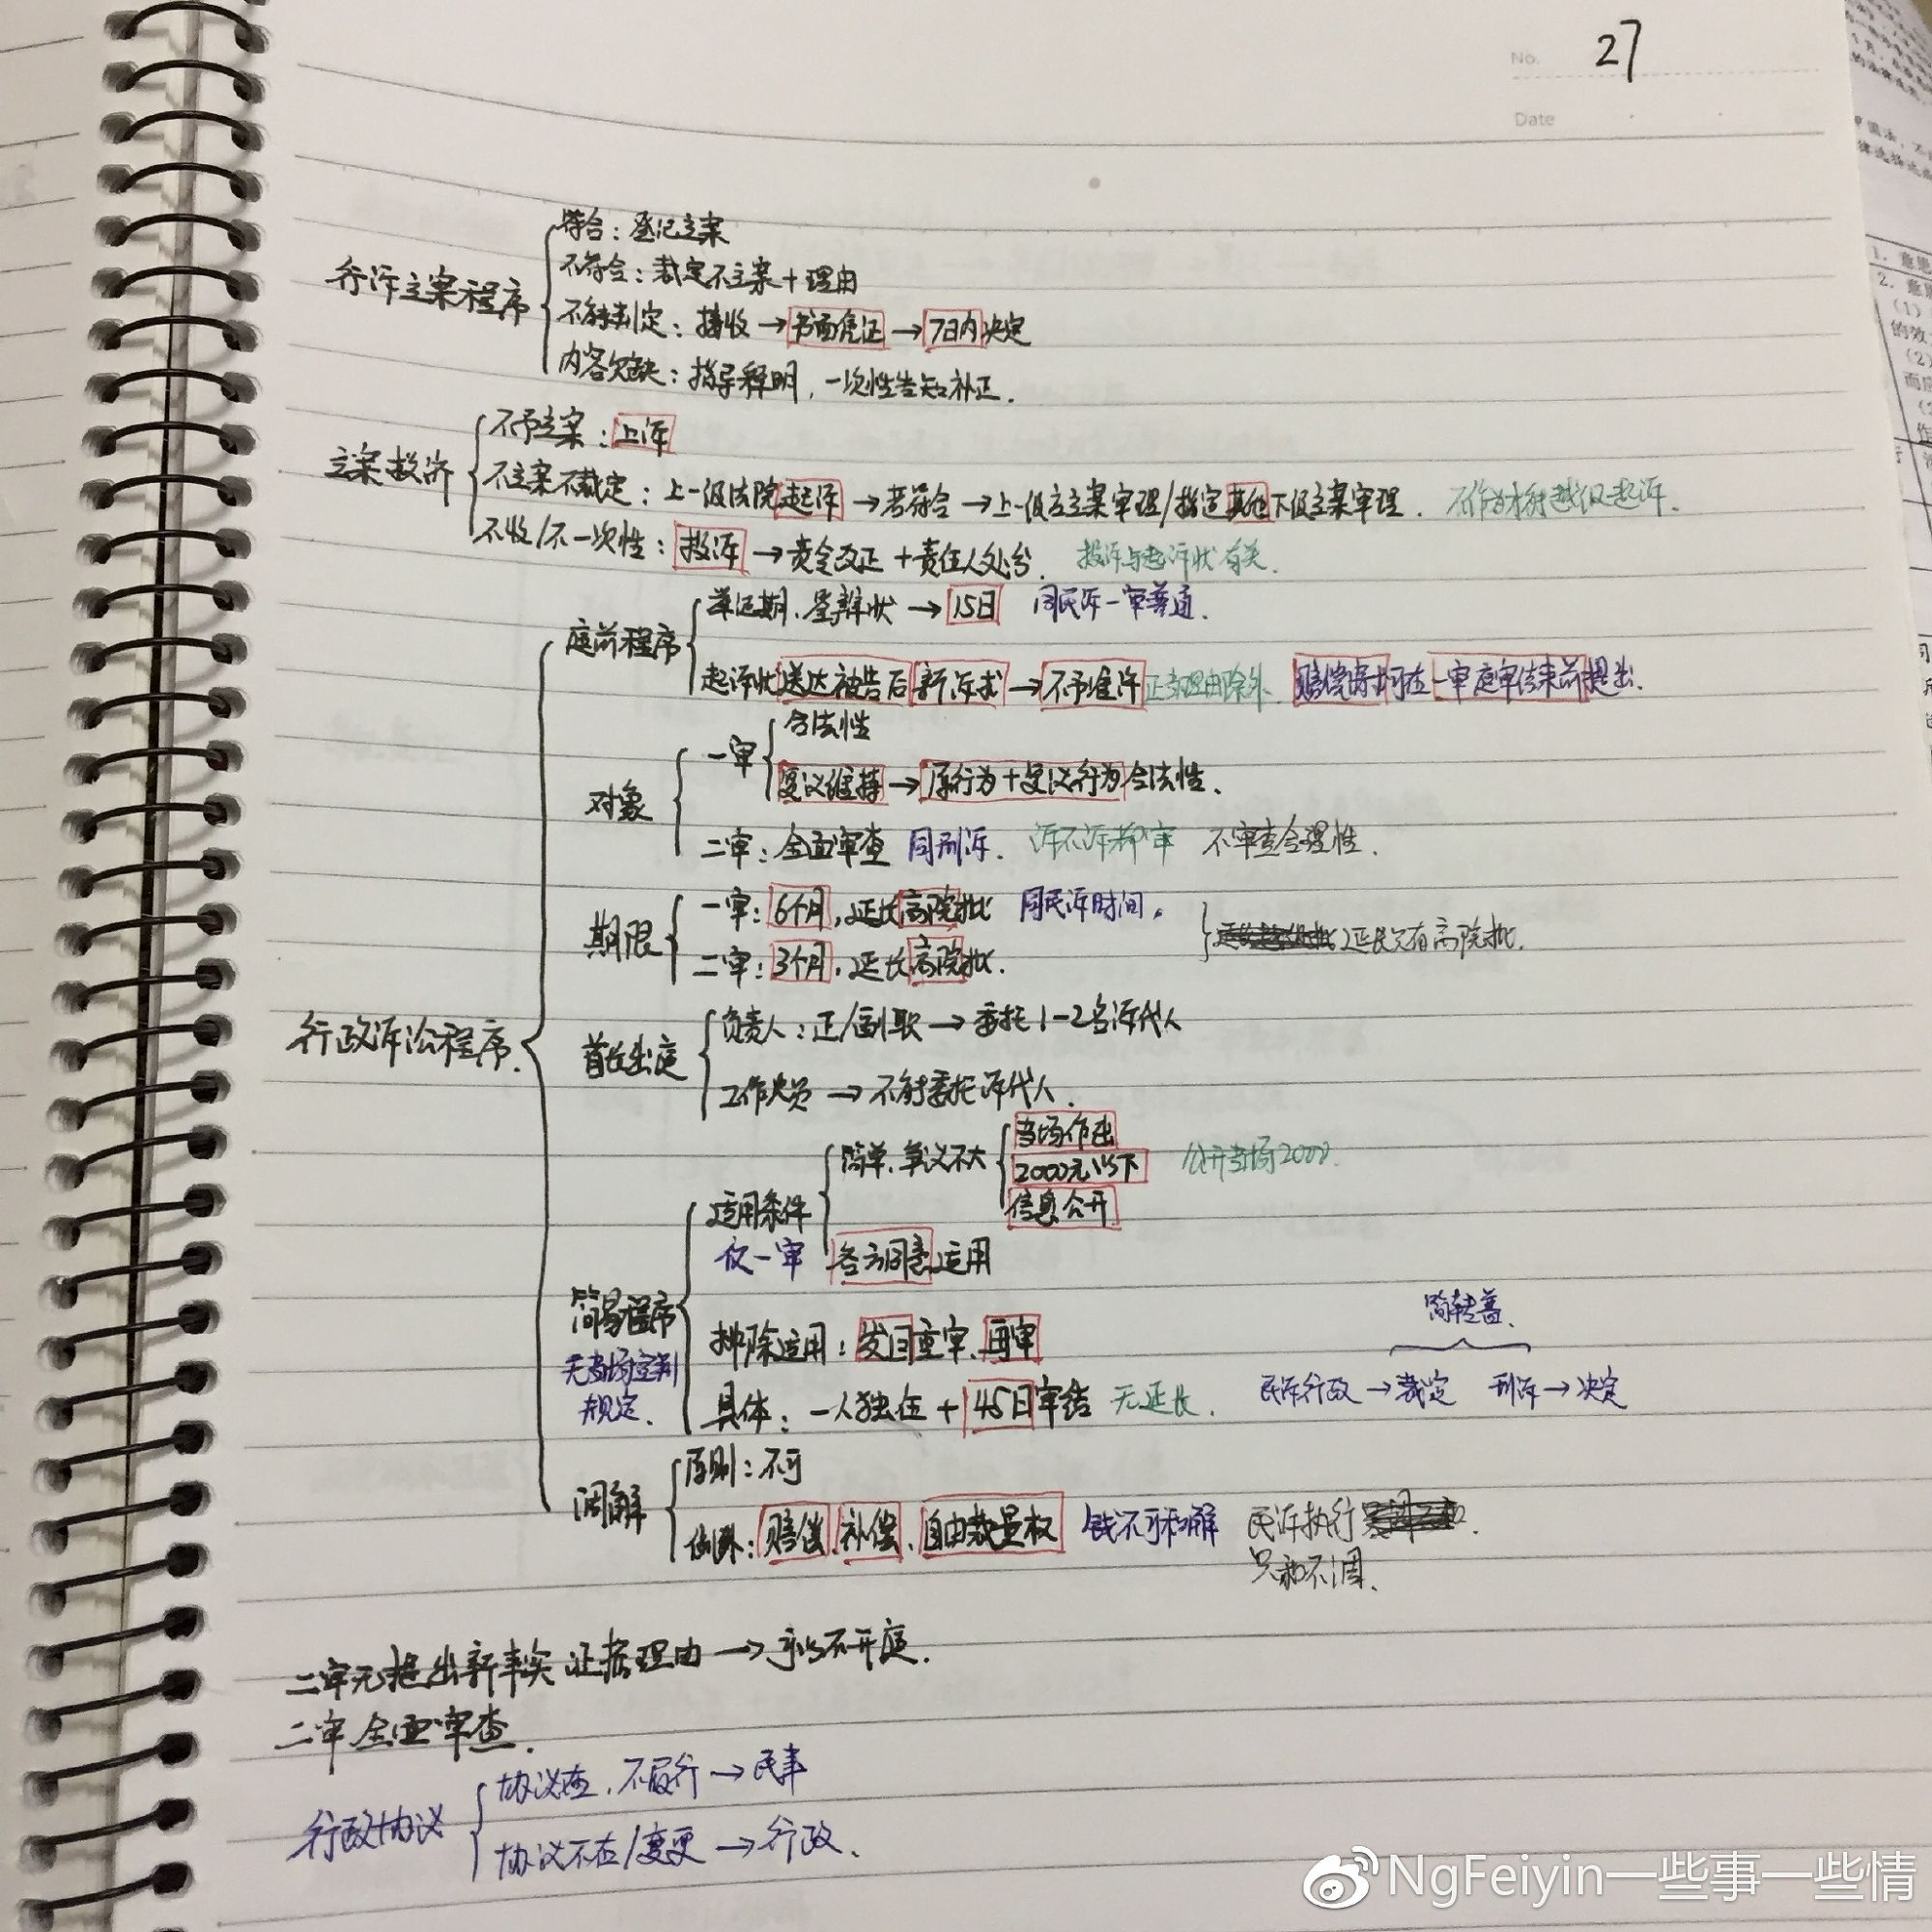 No. 27
Date
行诉立案程序
符合：登记立案
不符合：裁定不立案+理由
不能判定：接收→书面凭证→7日内决定
内容欠缺：指导释明，一次性告知补正.
立案救济
不予立案：上诉
不立案不裁定：上一级法院起诉→若符合→上一级立立案审理/指定其他下级立案审理. 不作为才能越级起诉.
不收/不一次性：投诉→责令改正+责任人处分. 投诉与起诉状有关.
行政诉讼程序.
庭前程序
举证期、答辩状→15日 同民诉一审普通.
起诉状送达被告后新诉求→不予准许 正当理由除外. 赔偿 可在一审庭审结束前提出.
对象
一审
合法性
复议维持→原行为+复议行为合法性.
二审：全面审查 同刑诉. 诉不诉都审 不审查合理性.
期限
一审：6个月，延长高院批 同民诉时间.
二审：3个月，延长高院批.
延长只有高院批.
首长出庭
负责人：正/副职→委托1-2名诉代人
工作人员→不能委托诉代人.
简易程序
无当场宣判
规定.
适用条件
仅一审
简单、争议不大
当场作出
2000元以下
信息公开
公开当场2000.
各方同意适用
排除适用：发回重审、再审
具体：一人独任+45日审结 无延长.
简转普.
民诉行政→裁定 刑诉→决定
调解
原则：不可
例外：赔偿、补偿、自由裁量权 钱不可和解 民诉执行
只和不调.
二审无提出新事实证据理由→可以不开庭.
二审全面审查.
行政协议
协议在，不履行→民事
协议不在/变更→行政.
NgFeiyin一些事一些情